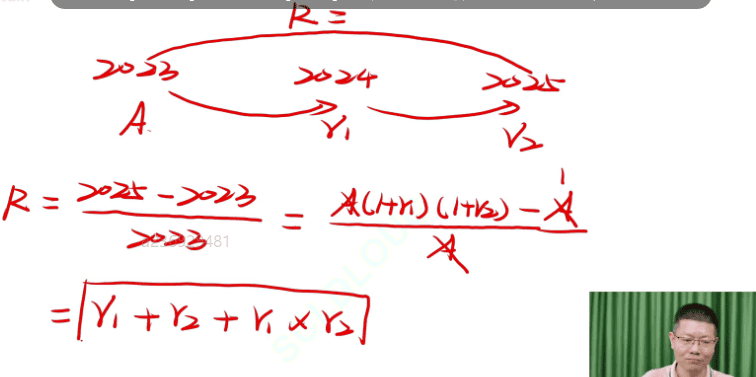 R =
2023 2024 2025
A. r₁ r₂
R = (2025 - 2023) / 2023 = (A(1+r₁)(1+r₂) - A 1) / A
= r₁ + r₂ + r₁ × r₂